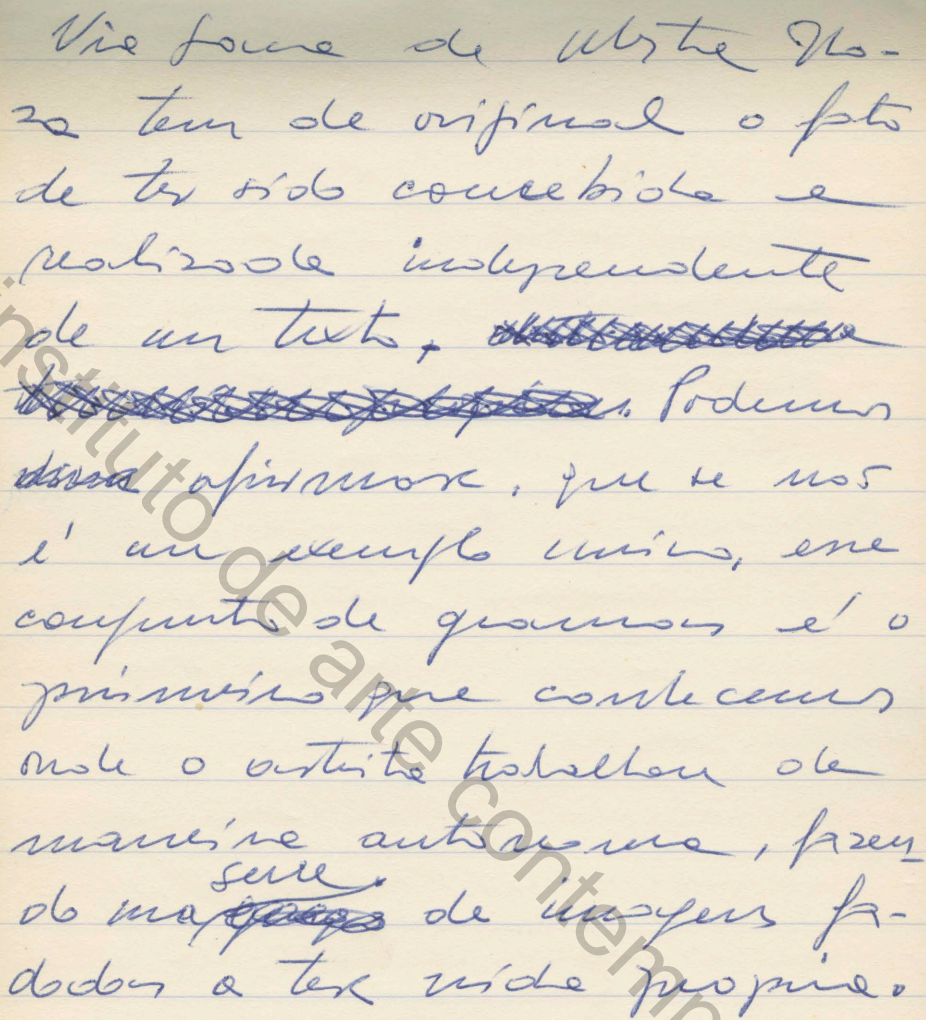 Via Sacra de Mestre No-
za tem de original o fato
de ter sido concebida e
realizada independente
de um texto,
. Podemos
afirmar, que se não
é um exemplo unico, esse
conjunto de gravuras é o
primeiro que conhecemos
onde o artista trabalhou de
maneira autonoma, fazen-
serie
do uma de imagens fa-
dadas a ter vida propria.
instituto de arte contemp